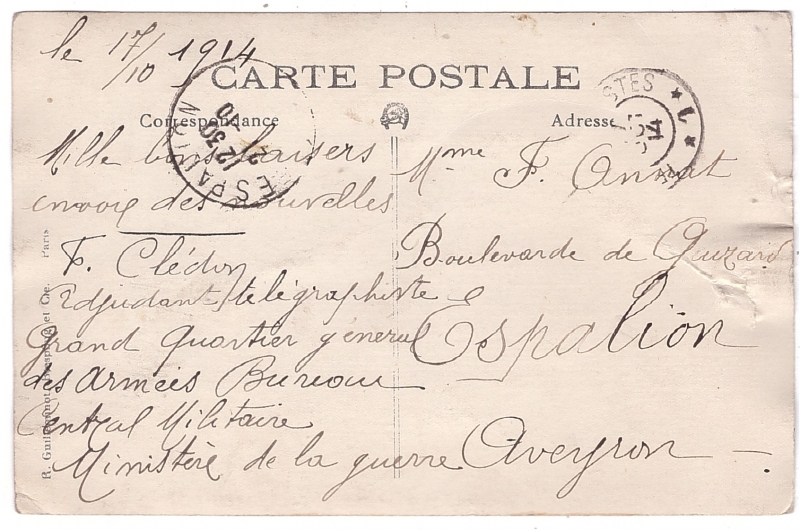 le 17/10 1914
CARTE POSTALE
Correspondance
Adresse
ESPALION
12 30
POSTES
14
Mille bons baisers
envoie des nouvelles
F. Clédon
Adjudant télégraphiste
Grand Quartier général
des Armées Bureau
Central Militaire
Ministère de la guerre
Mme F. Annat
Boulevarde de Guizard
Espalion
Aveyron
R. Guilleminot, Bœspflug et Cie. Paris